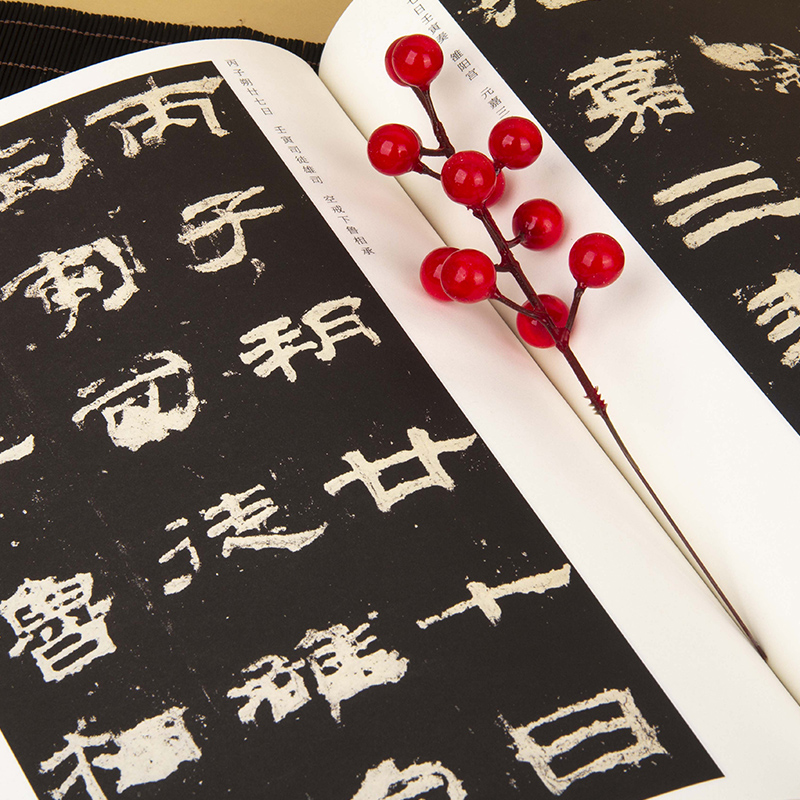 七日壬寅奏 雒阳宫 元嘉三
嘉三
丙子朔廿七日 壬寅司徒雄司 空戒下鲁相承
丙子朔廿七日
寅司徒雄
魯相